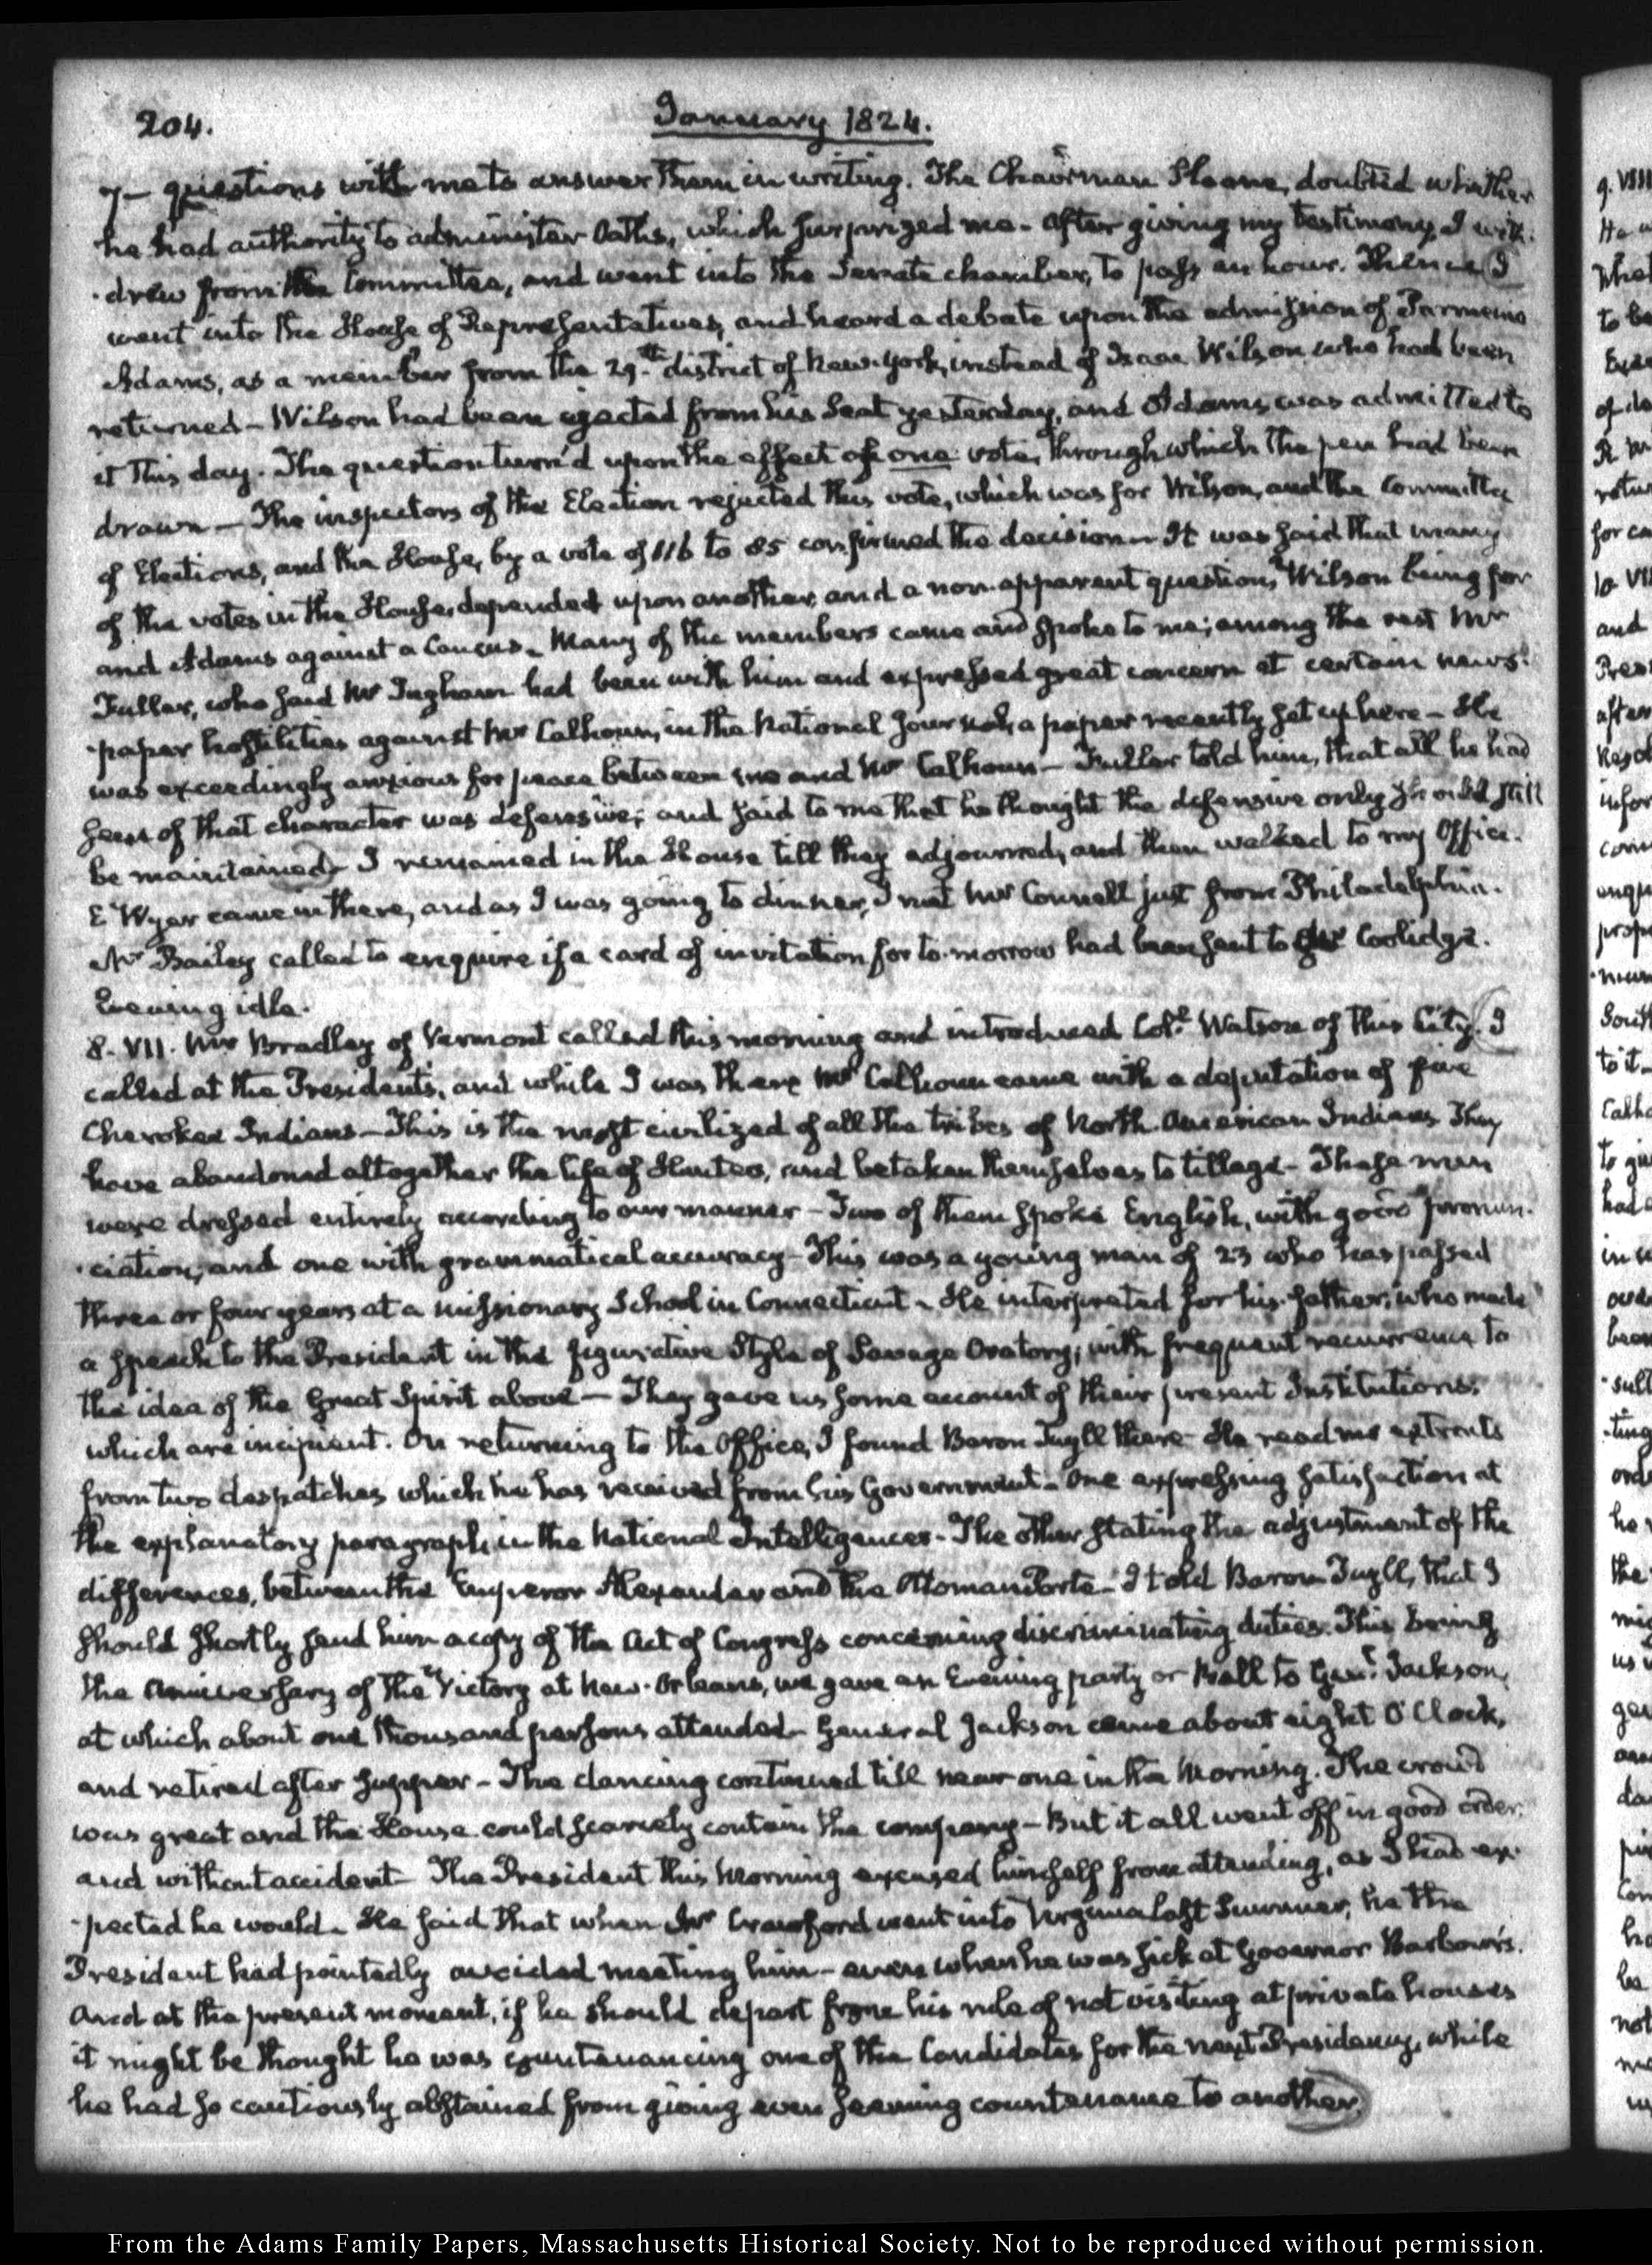 204.
January 1824.
7— questions with me to answer them in writing. The Chairman Sloane, doubted whether
he had authority to administer Oaths, which surprized me. After giving my testimony, I with-
-drew from the Committee, and went into the Senate chamber, to pass an hour. Thence I
went into the House of Representatives, and heard a debate upon the admission of Parmenio
Adams, as a member from the 29th district of New-York, instead of Isaac Wilson who had been
returned— Wilson had been ejected from his Seat yesterday, and Adams was admitted to
it this day. The question turn'd upon the effect of one vote, through which the pen had been
drawn— The inspectors of the Election rejected this vote, which was for Wilson, and the Committee
of Elections, and the House, by a vote of 116 to 85 confirmed the decision— It was said that many
of the votes in the House, depended upon another, and a non-apparent question, Wilson being for
and Adams against a Caucus— Many of the members came and spoke to me; among the rest Mr
Fuller, who said Mr Ingham had been with him and expressed great concern at certain news-
-paper hostilities against Mr Calhoun, in the National Journal, a paper recently set up here— He
was exceedingly anxious for peace between me and Mr Calhoun— Fuller told him, that all he had
seen of that character was defensive; and said to me that he thought the defensive only should still
be maintained— I remained in the House till they adjourned, and then walked to my Office.
E Wyer came in there, and as I was going to dinner, I met Mr Connell just from Philadelphia.
Mr Bailey called to enquire if a card of invitation for to-morrow had been sent to Mr Coolidge.
Evening idle.
8. VII. Mr Bradley of Vermont called this morning and introduced Coll Watson of this City. I
called at the Presidents, and while I was there Mr Calhoun came with a deputation of five
Cherokee Indians— This is the most civilized of all the tribes of North-American Indians. They
have abandoned altogether the life of Hunters, and betaken themselves to tillage— These men
were dressed entirely according to our manner— Two of them spoke English, with good pronun-
-ciation, and one with grammatical accuracy— This was a young man of 23 who has passed
three or four years at a missionary School in Connecticut— He interpreted for his father, who made
a speech to the President in the figurative Style of Savage Oratory; with frequent recurrence to
the idea of the Great Spirit above— They gave us some account of their present Institutions,
which are incipient. On returning to the Office, I found Baron Tuyll there— He read me extracts
from two despatches which he has received from his Government— One expressing satisfaction at
the explanatory paragraph in the National Intelligencer— The other stating the adjustment of the
differences, between the Emperor Alexander and the Ottoman Porte— I told Baron Tuyll, that I
should shortly send him a copy of the Act of Congress concerning discriminating duties. This being
the Anniversary of the Victory at New-Orleans, we gave an Evening party or Ball to Genl Jackson,
at which about one thousand persons attended— General Jackson came about eight O'Clock,
and retired after supper— The dancing continued till near one in the Morning. The crowd
was great and the House could scarcely contain the company— But it all went off in good order,
and without accident— The President this Morning excused himself from attending, as I had ex-
-pected he would— He said that when Mr Crawford went into Virginia last Summer, he the
President had pointedly avoided meeting him— even when he was sick at Governor Barbour's.
And at the present moment, if he should depart from his rule of not visiting at private houses
it might be thought he was countenancing one of the Candidates for the next Presidency, while
he had so cautiously abstained from giving even seeming countenance to another.
From the Adams Family Papers, Massachusetts Historical Society. Not to be reproduced without permission.